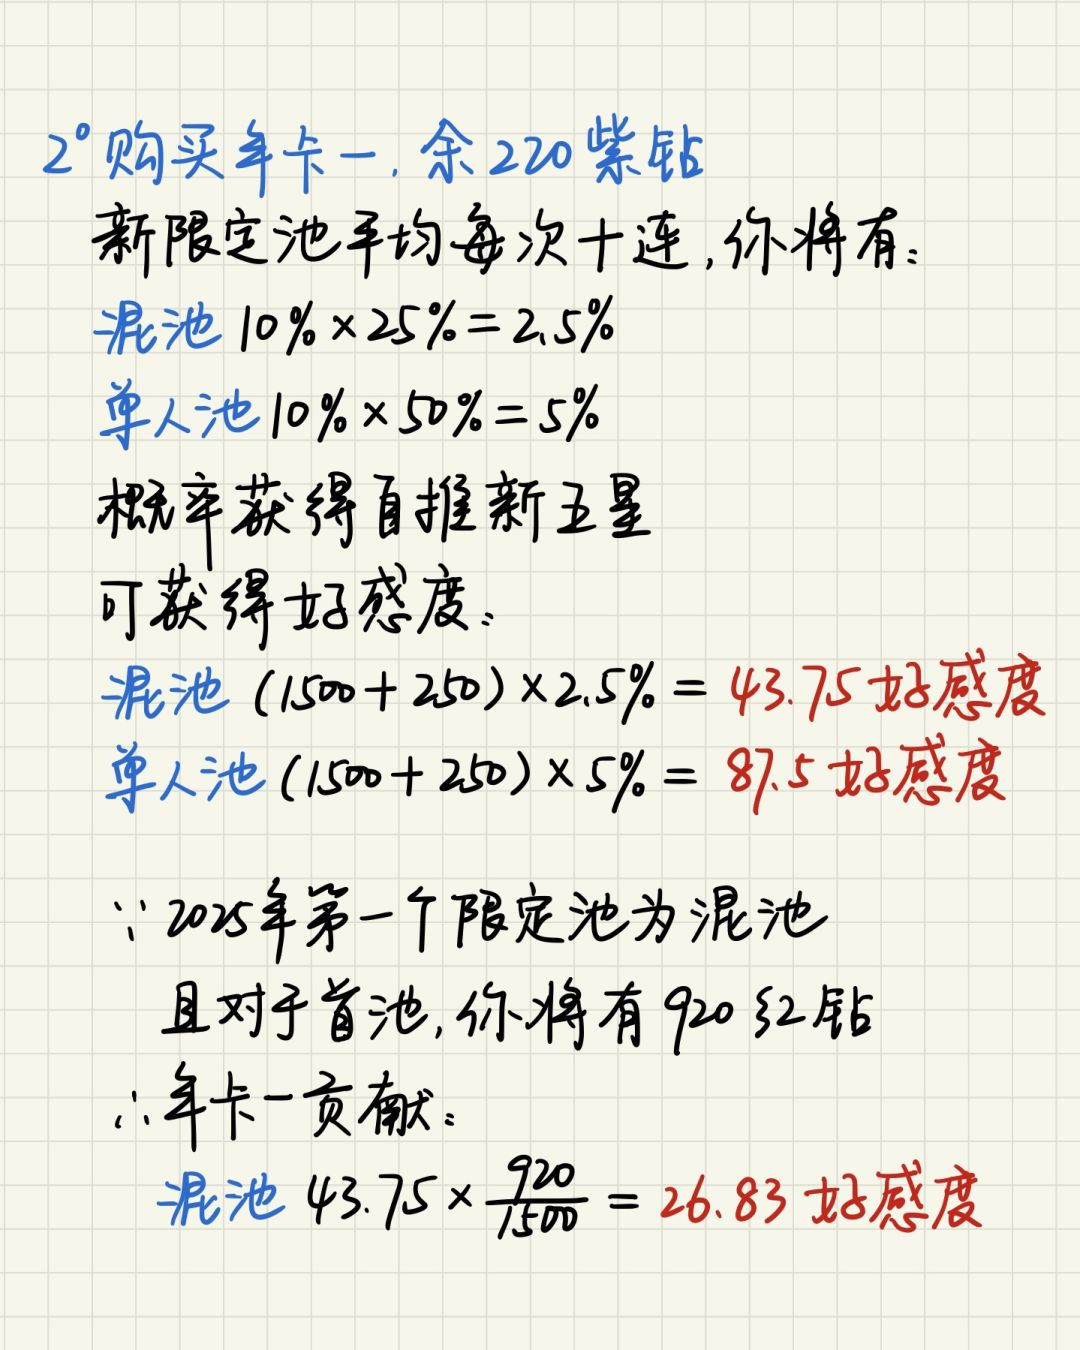 2°购买年卡一,余220紫钻
新限定池平均每次十连,你将有:
混池 10%×25%=2.5%
单人池 10%×50%=5%
概率获得自推新五星
可获得好感度:
混池 (1500+250)×2.5%= 43.75 好感度
单人池 (1500+250)×5%= 87.5 好感度
∵2025年第一个限定池为混池
且对于首池,你将有920红钻
∴年卡一贡献:
混池 43.75×920/1500=26.83 好感度